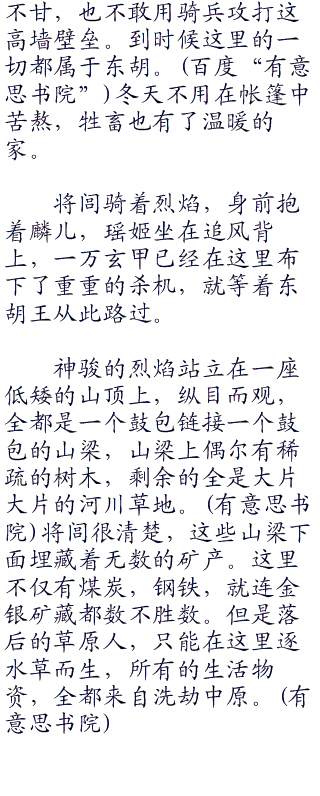 不甘，也不敢用骑兵攻打这
高墙壁垒。到时候这里的一
切都属于东胡。(百度“有意
思书院”)冬天不用在帐篷中
苦熬，牲畜也有了温暖的
家。
将闾骑着烈焰，身前抱
着麟儿，瑶姬坐在追风背
上，一万玄甲已经在这里布
下了重重的杀机，就等着东
胡王从此路过。
神骏的烈焰站立在一座
低矮的山顶上，纵目而观，
全都是一个鼓包链接一个鼓
包的山梁，山梁上偶尔有稀
疏的树木，剩余的全是大片
大片的河川草地。(有意思书
院)将闾很清楚，这些山梁下
面埋藏着无数的矿产。这里
不仅有煤炭，钢铁，就连金
银矿藏都数不胜数。但是落
后的草原人，只能在这里逐
水草而生，所有的生活物
资，全都来自洗劫中原。(有
意思书院)